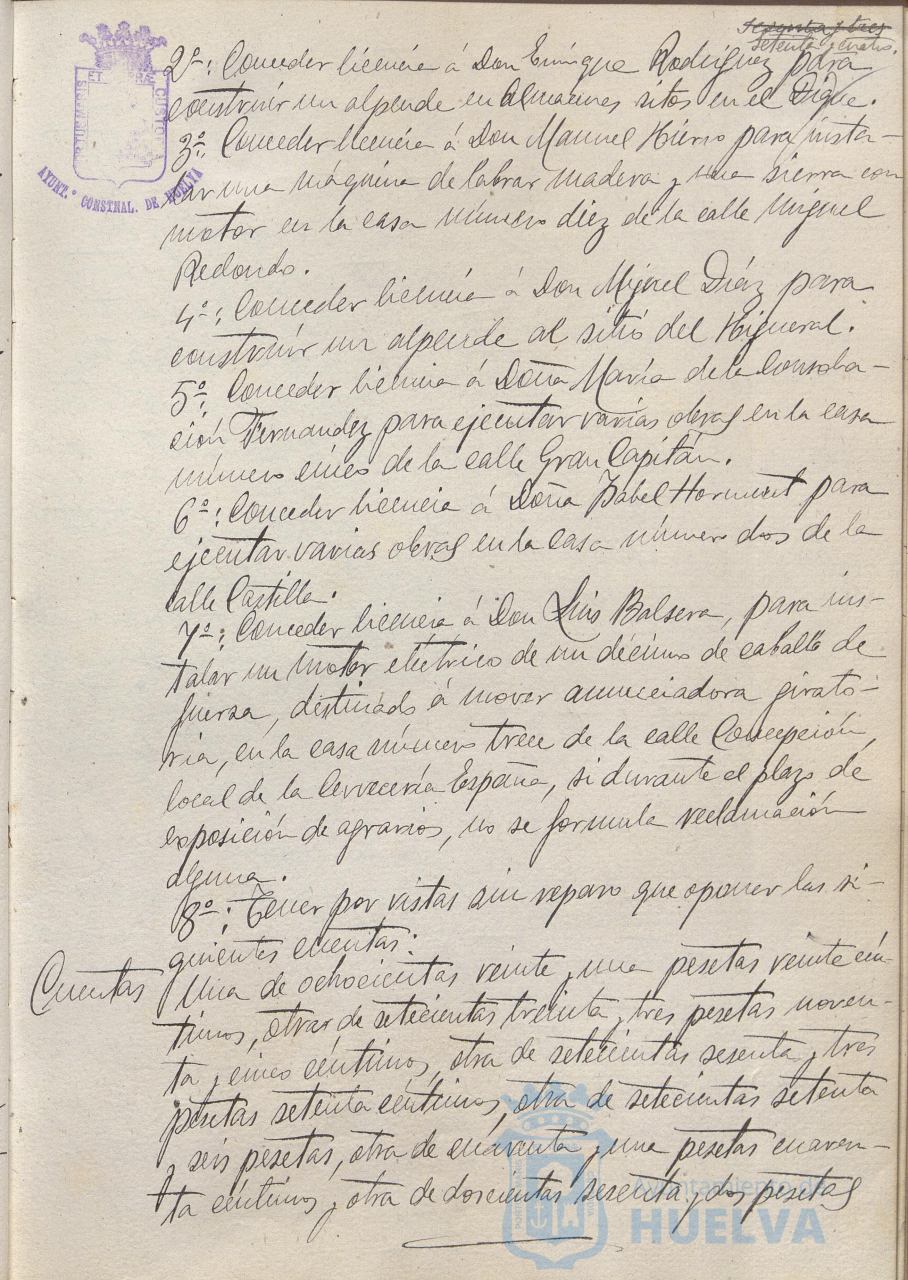 Sesenta y tres
setenta y cuatro.
2º: Conceder licencia á Don Enrique Rodriguez para
construir un alpende en almacenes sitos en el Dique.
3º: Conceder licencia á Don Manuel Hierro para insta-
lar una máquina de labrar madera y una sierra con
motor en la casa número diez de la calle Miguel
Redondo.
4º: Conceder licencia á Don Miguel Díaz para
construir un alpende al sitio del Higueral.
5º: Conceder licencia á Doña María de la Consola-
ción Fernandez para ejecutar varias obras en la casa
número cinco de la calle Gran Capitán.
6º: Conceder licencia á Doña Isabel para
ejecutar varias obras en la casa número dos de la
calle Castilla.
7º: Conceder licencia á Don Luis Balsera, para ins-
talar un motor eléctrico de un décimo de caballo de
fuerza, destinado á mover anunciadora girato-
ria, en la casa número trece de la calle Concepción,
local de la Cervecería España, si durante el plazo de
exposición de agravios, no se formula reclamación
alguna.
8º: Tener por vistas sin reparo que oponer las si-
guientes cuentas:
Cuentas Una de ochocientas veinte y una pesetas veinte cén-
timos, otra de setecientas treinta y tres pesetas noven-
ta y cinco céntimos, otra de setecientas sesenta y tres
pesetas setenta céntimos, otra de setecientas setenta
y seis pesetas, otra de cuarenta y una pesetas cuaren-
ta céntimos y otra de doscientas sesenta y dos pesetas
AYUNT.º CONSTNAL. DE HUELVA
Ayuntamiento de
HUELVA